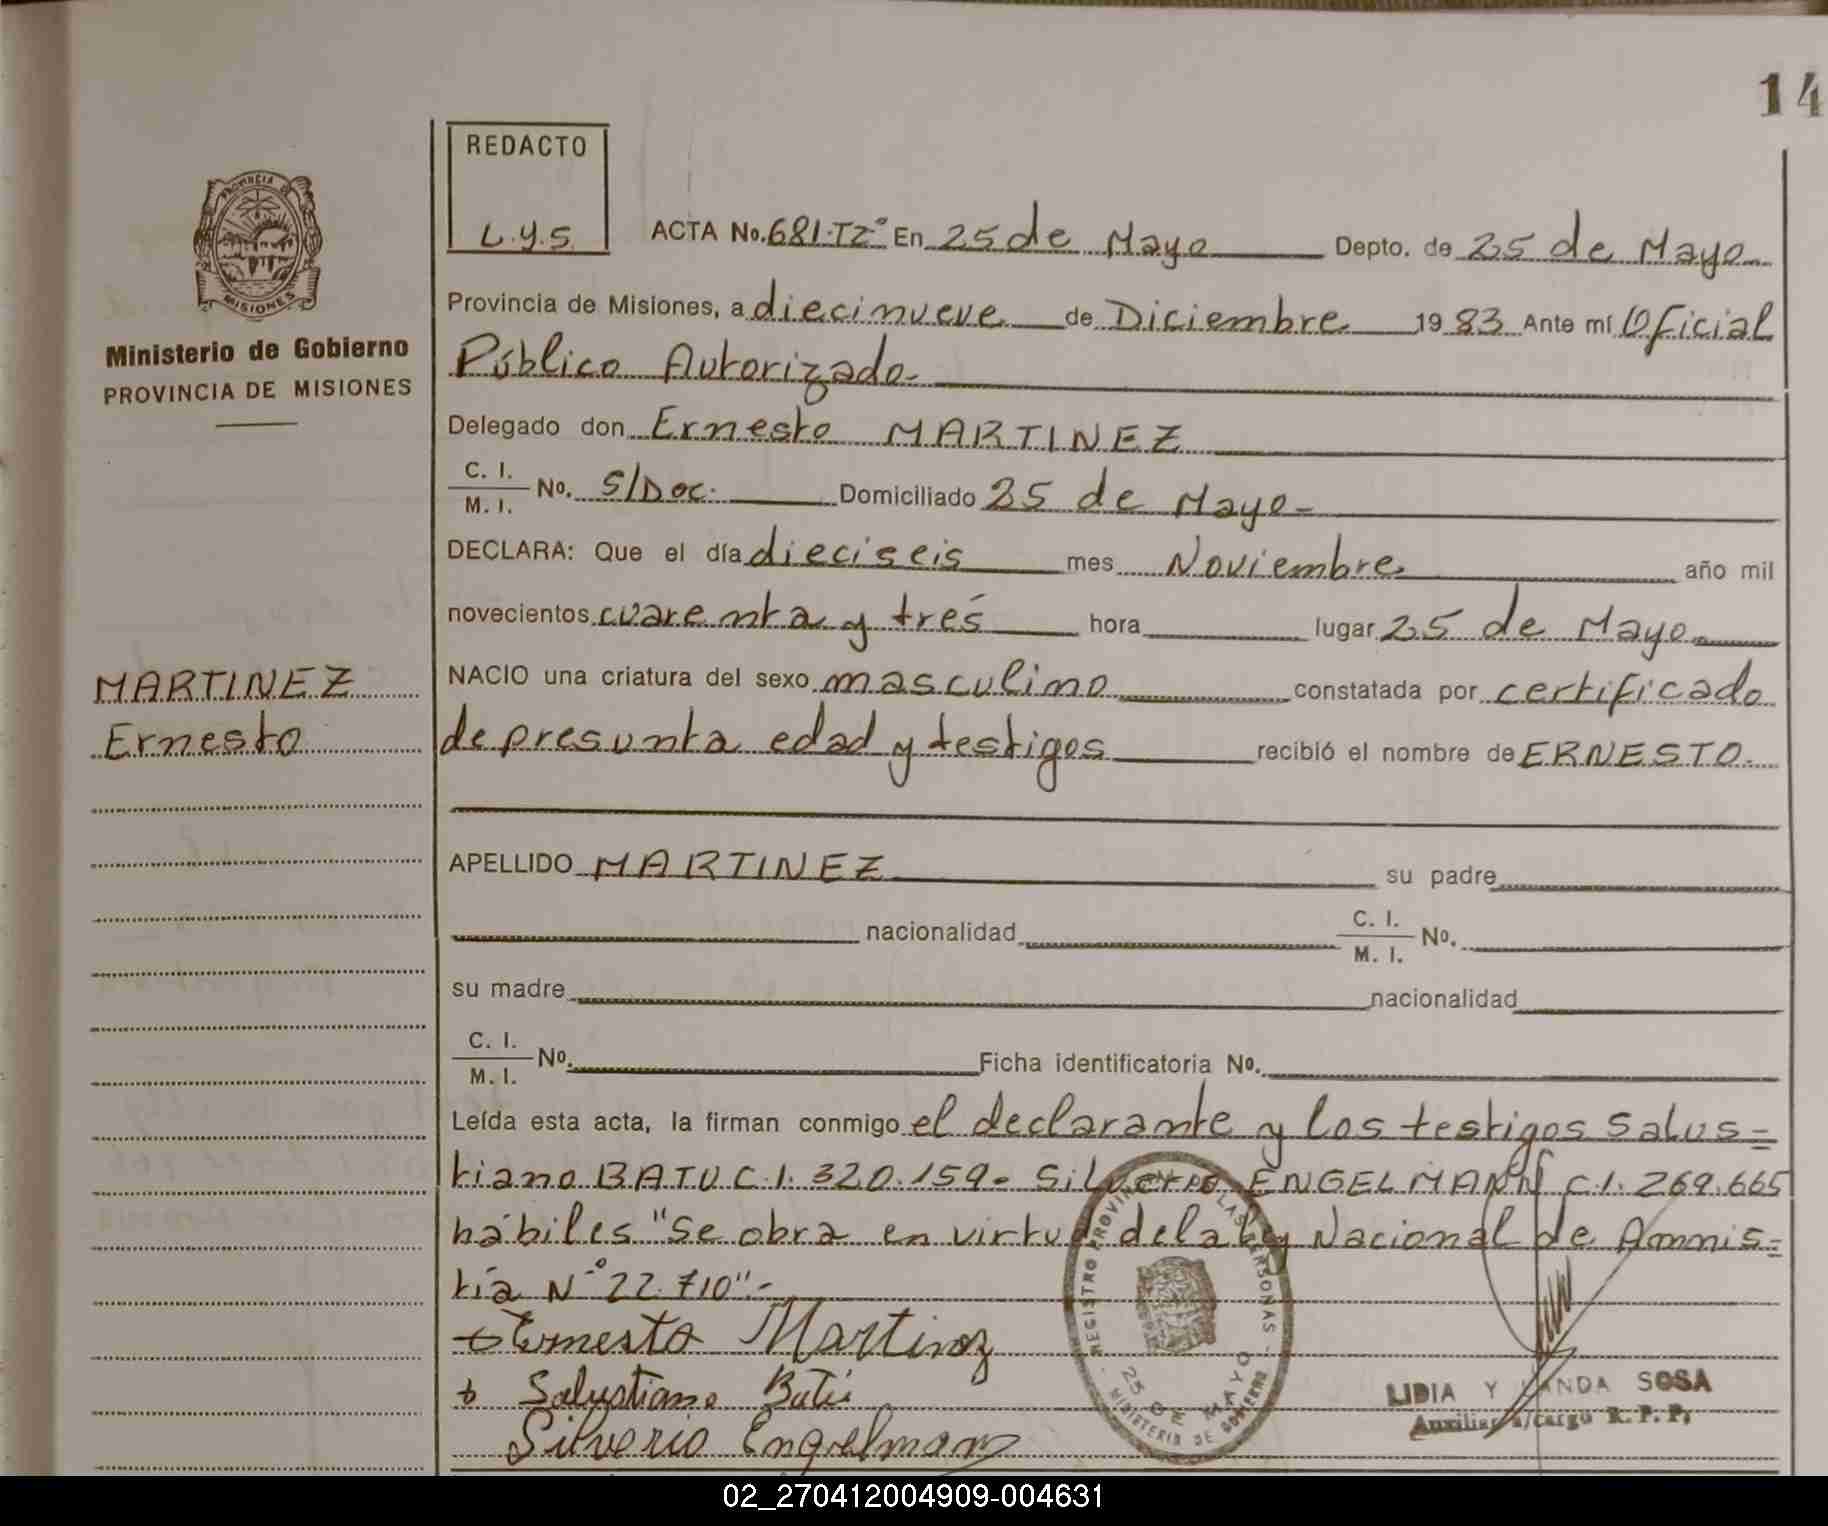 14
REDACTO
L.Y.S.
ACTA No. 681-T2º En 25 de Mayo Depto. de 25 de Mayo
PROVINCIA DE
MISIONES
Ministerio de Gobierno
PROVINCIA DE MISIONES
Provincia de Misiones, a diecinueve de Diciembre 1983 Ante mí Oficial
Público Autorizado-
Delegado don Ernesto MARTINEZ
C. I.
M. I. No. S/Doc. Domiciliado 25 de Mayo-
DECLARA: Que el día dieciseis mes Noviembre año mil
novecientos cuarenta y trés hora lugar 25 de Mayo
MARTINEZ
Ernesto
NACIO una criatura del sexo masculino constatada por certificado
de presunta edad y testigos recibió el nombre de ERNESTO.
APELLIDO MARTINEZ su padre
nacionalidad C. I.
M. I. No.
su madre nacionalidad
C. I.
M. I. No. Ficha identificatoria No.
Leída esta acta, la firman conmigo el declarante y los testigos Salus=
tiano BATU C.I. 320.159- Silverio ENGELMANN C.I. 269.665
hábiles "Se obra en virtud de la ley Nacional de Amnis=
tía Nº 22.710".-
Ernesto Martinez
Salustiano Batú
Silverio Engelmann
REGISTRO PROVINCIAL DE LAS PERSONAS
25 DE MAYO
MINISTERIO DE GOBIERNO
LIDIA Y SOSA
Auxiliar a/cargo R. P. P.
02_270412004909-004631